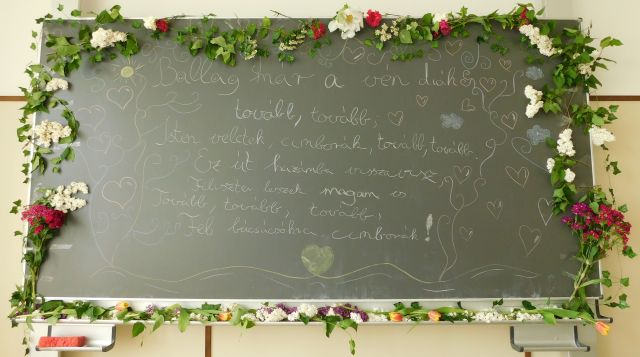 Ballag már a vén diák
tovább, tovább,
Isten veletek, cimborák, tovább, tovább.
Ez út hazámba vissza visz
Filiszter leszek magam is
Tovább, tovább, tovább,
Fel búcsúcsókra cimborák!